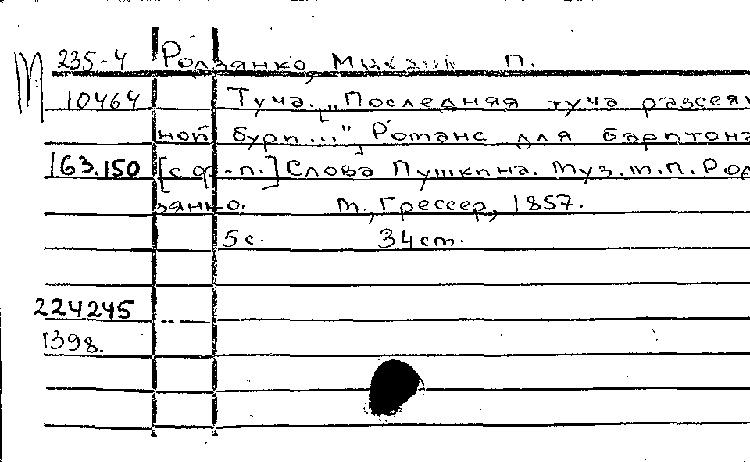 М 235-4 Родзянко, Михаил П.
10464 Туча. "Последняя туча рассеян
ной бури..." Романс для баритона
163.150 [с ф.-п.] Слова Пушкина. Муз. М.П. Род
зянко. М., Грессер, 1857.
5 с. 34 cm.
224245
1398.